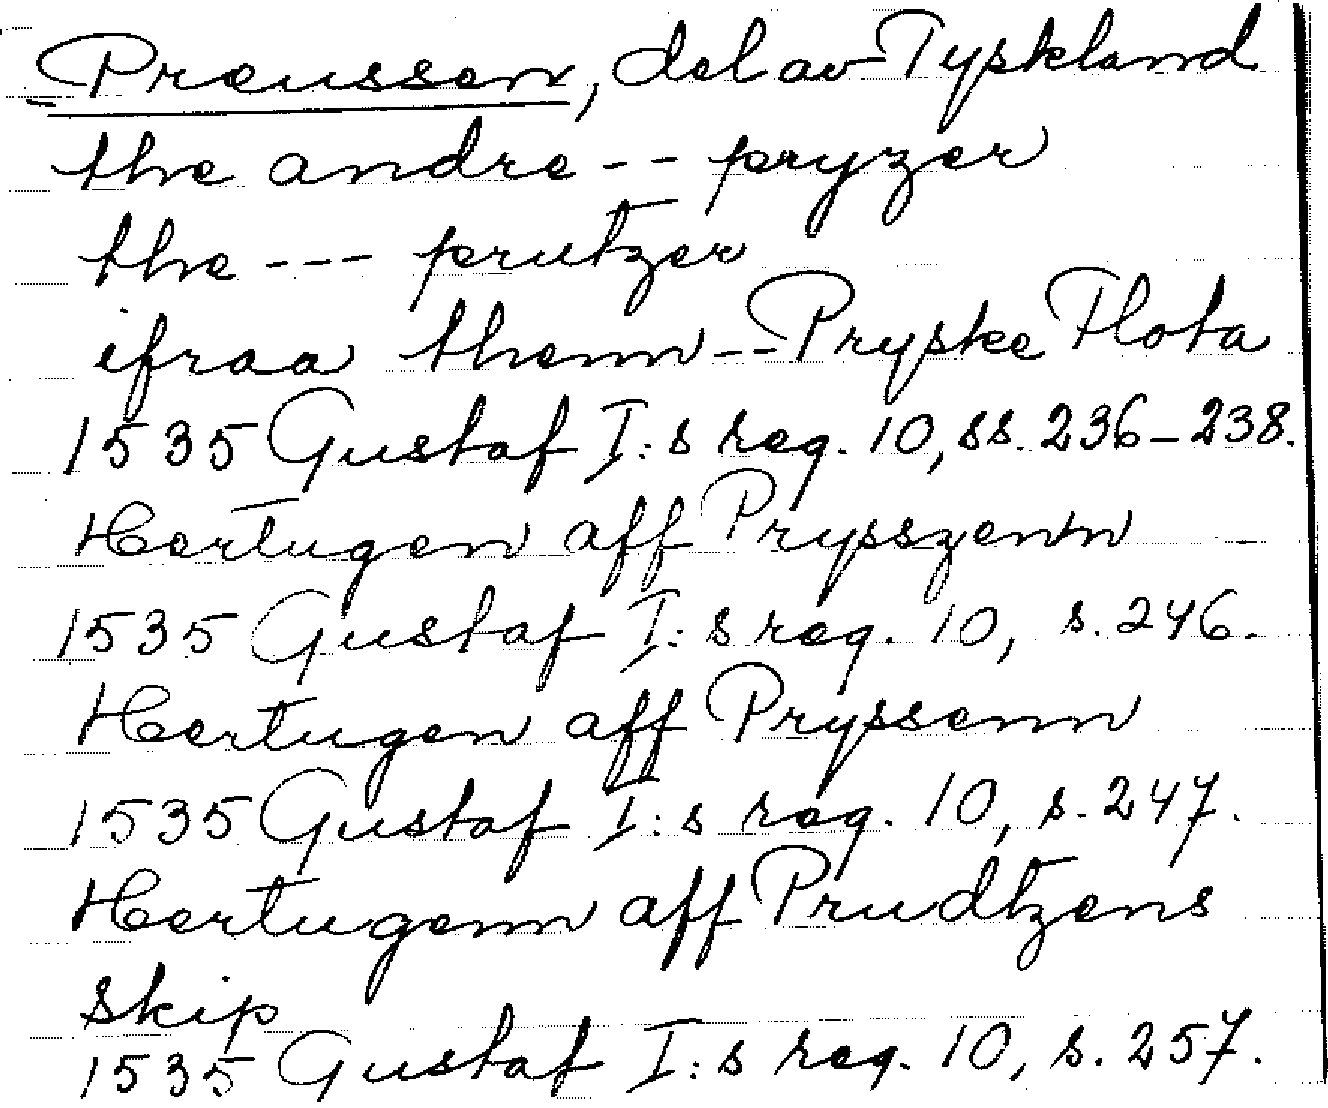 Preussen, del av Tyskland
the andre -- pryzer
the --- prutzer
ifraa themn -- Pryske Flota
1535 Gustaf I:s reg. 10, ss. 236-238.
Hertugen aff Prysszenn
1535 Gustaf I:s reg. 10, s. 246.
Hertugen aff Pryssenn
1535 Gustaf I:s reg. 10, s. 247.
Hertugenn aff Prudtzens
skip
1535 Gustaf I:s reg. 10, s. 257.